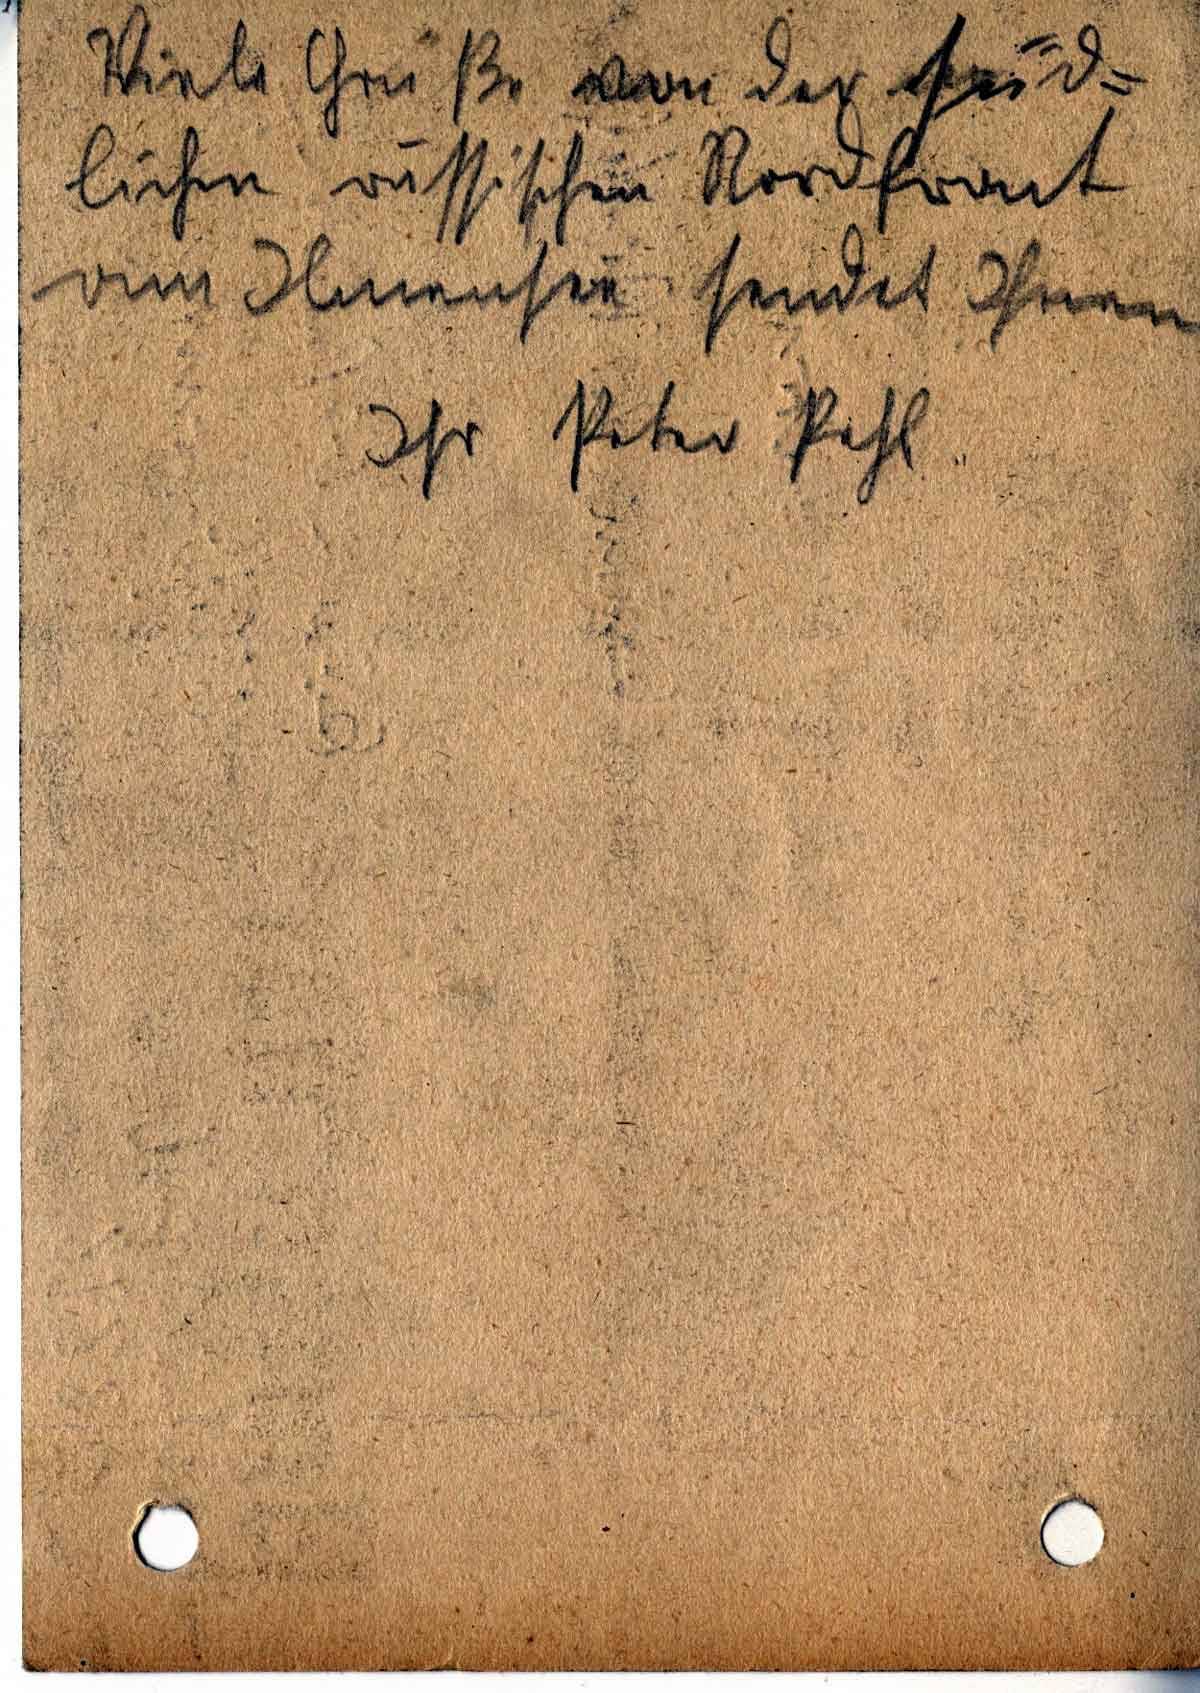 Viele Grüße von der süd=
lichen russischen Nordfront
am Ilmensee sendet Ihnen
Ihr Peter Pehl.